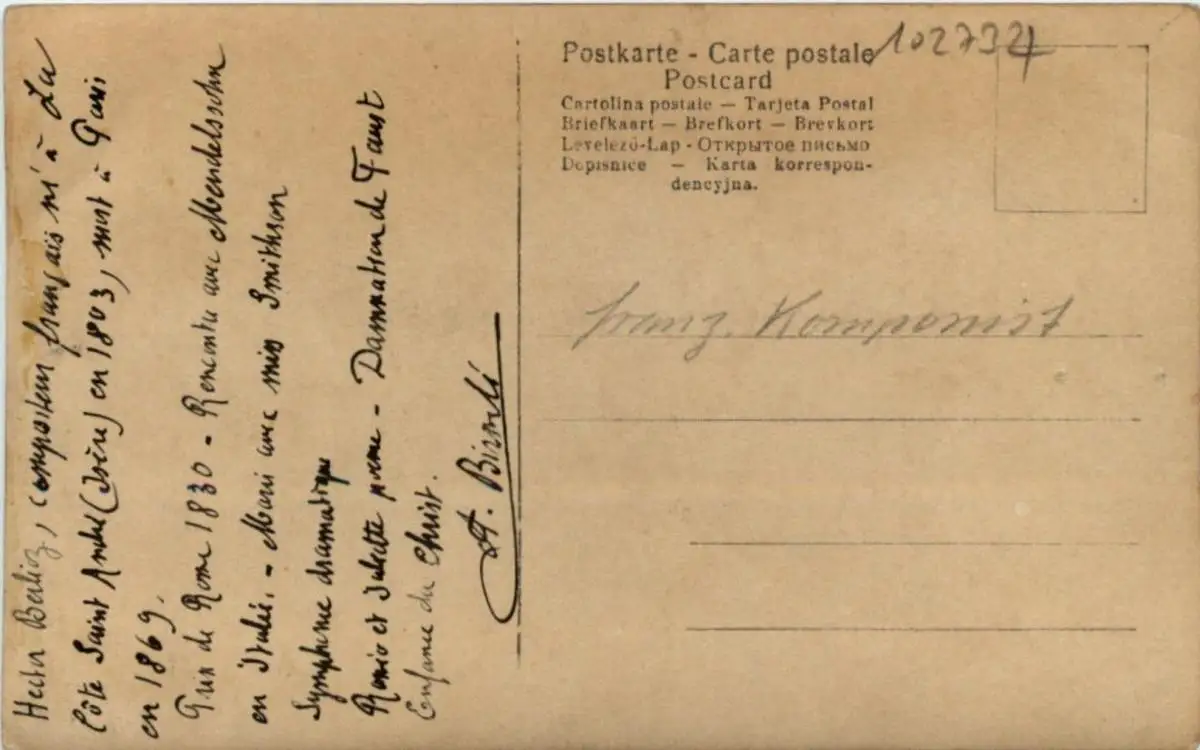 Hector Berlioz, compositeur français né à La
Côte Saint André (Isère) en 1803, mort à Paris
en 1869.
Prix de Rome 1830 - Rencontre avec Mendelssohn
en Italie. - Marié avec miss Smithson
Symphonie dramatique
Roméo et Juliette - Damnation de Faust
Enfance du Christ.
Postkarte - Carte postale
Postcard
Cartolina postale — Tarjeta Postal
Briefkaart — Brefkort — Brevkort
Levelező-Lap - Открытое письмо
Dopisnice — Karta korrespon-
dencyjna.
franz. Komponist